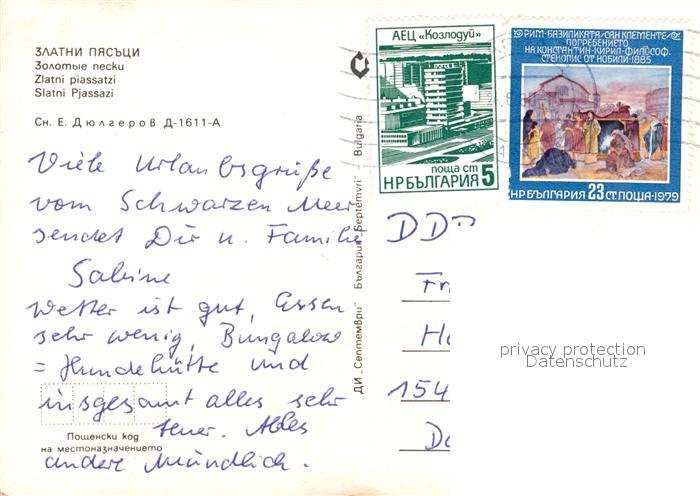 ЗЛАТНИ ПЯСЪЦИ
Золотые пески
Zlatni piassatzi
Slatni Pjassazi
Сн. Е. Дюлгеров Д-1611-А
Viele Urlaubsgrüße
vom Schwarzen Meer
sendet Dir u. Familie
Sabine
Wetter ist gut, Essen
sehr wenig, Bungalow
= Hundehütte und
insgesamt alles sehr
teuer. Alles
andere Mündlich.
Пощенски код
на местоназначението
ДИ „Септември" България „Septemvri" Bulgaria
АЕЦ «Козлодуй»
поща ст
НР БЪЛГАРИЯ 5
РИМ·БАЗИЛИКАТА/САН КЛЕМЕНТЕ/
ПОГРЕБЕНИЕТО
НА КОНСТАНТИН-КИРИЛ-ФИЛОСОФ.
СТЕНОПИС ОТ НОБИЛИ·1885
НР БЪЛГАРИЯ 23 СТ. ПОЩА·1979
DD
Fr
Ha
154
Do
privacy protection
Datenschutz